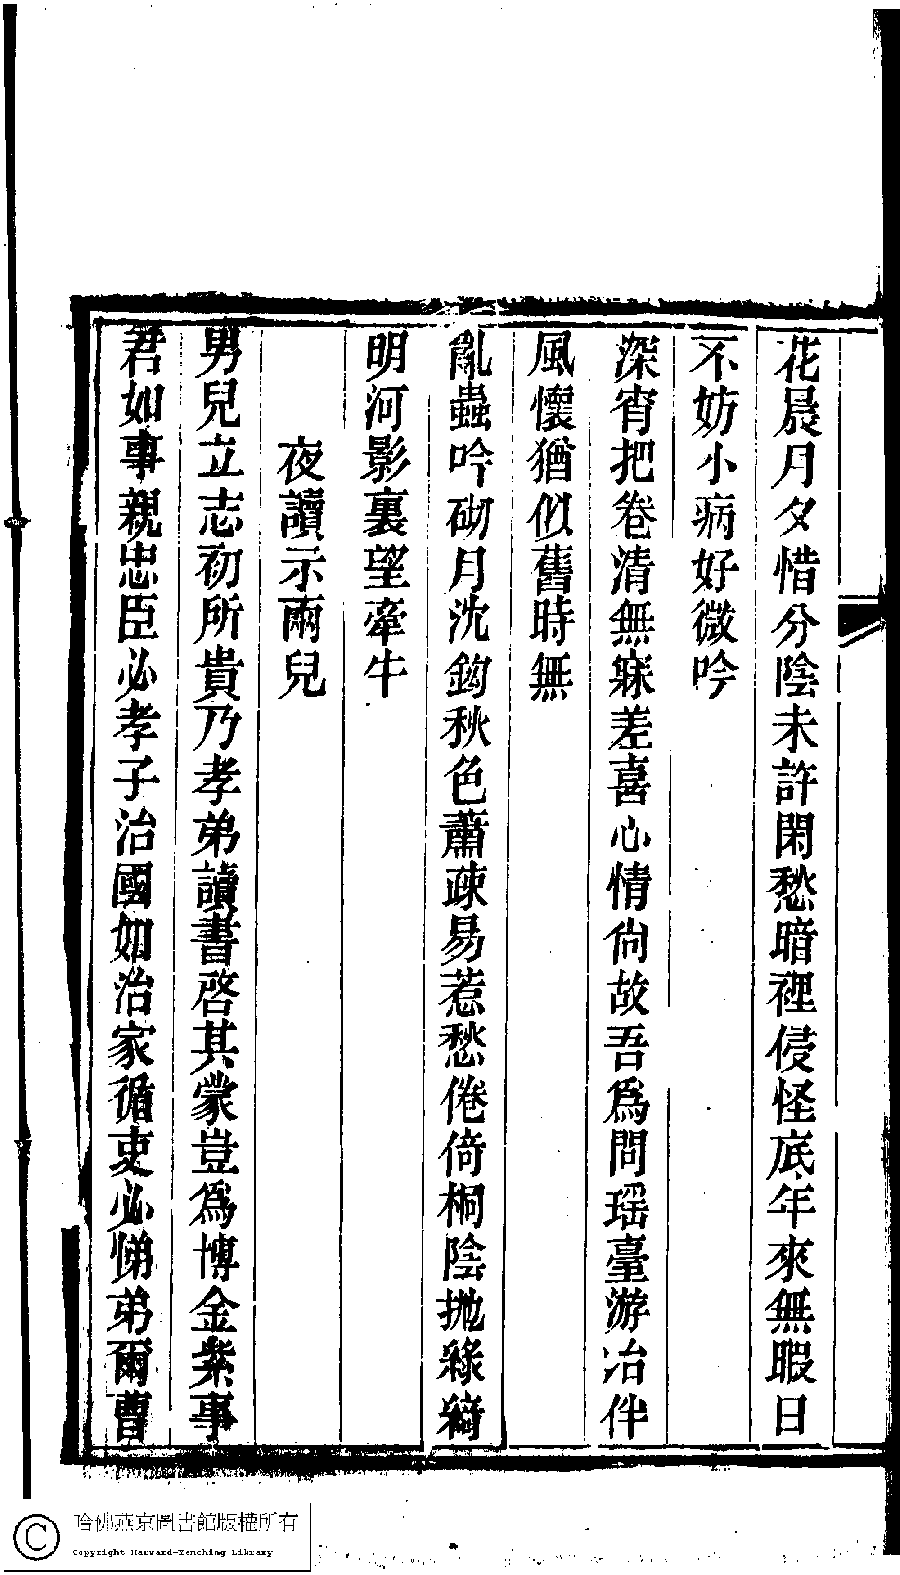 花晨月夕惜分陰未許閑愁暗裡侵怪底年來無暇日
不妨小病好微吟
深宵把卷清無寐差喜心情尙故吾爲問瑶臺游冶伴
風懷猶似舊時無
亂蟲吟砌月沈鈎秋色蕭疎易惹愁倦倚桐陰抛綠綺
明河影裏望牽牛
夜讀示兩兒
男兒立志初所貴乃孝弟讀書啓其蒙豈爲博金紫事
君如事親忠臣必孝子治國如治家循吏必悌弟爾曹
哈佛燕京圖書館版權所有
Copyright Harvard-Yenching Library